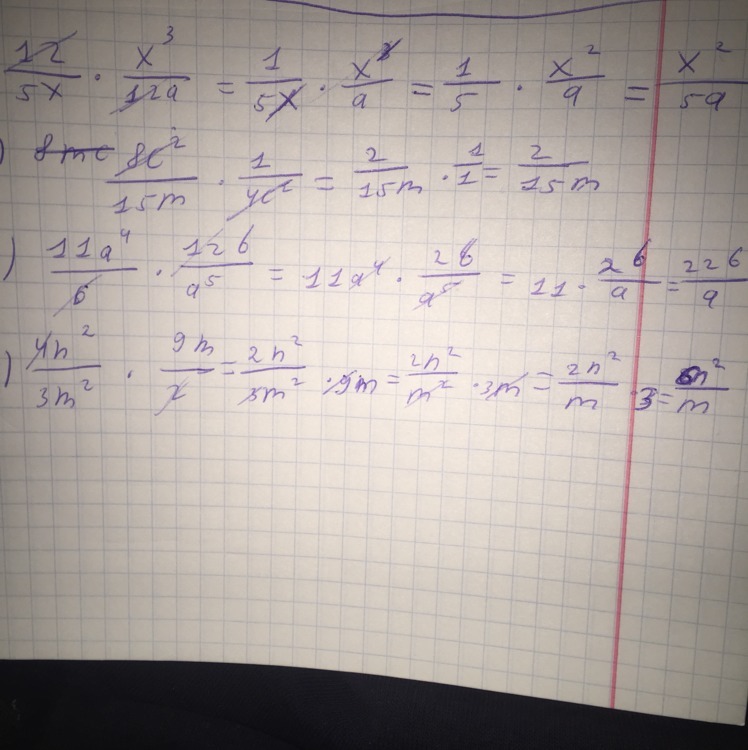 12/5x · x³/12a = 1/5x · x³/a = 1/5 · x²/a = x²/5a
) 8mc 8c²/15m · 1/4c² = 2/15m · 1/1 = 2/15m
) 11a⁴/6 · 12b/a⁵ = 11a⁴ · 2b/a⁵ = 11 · 2b/a = 22b/a
) 4n²/3m² · 9m/2 = 2n²/3m² · 9m = 2n²/m² · 3m = 2n²/m · 3 = 6n²/m